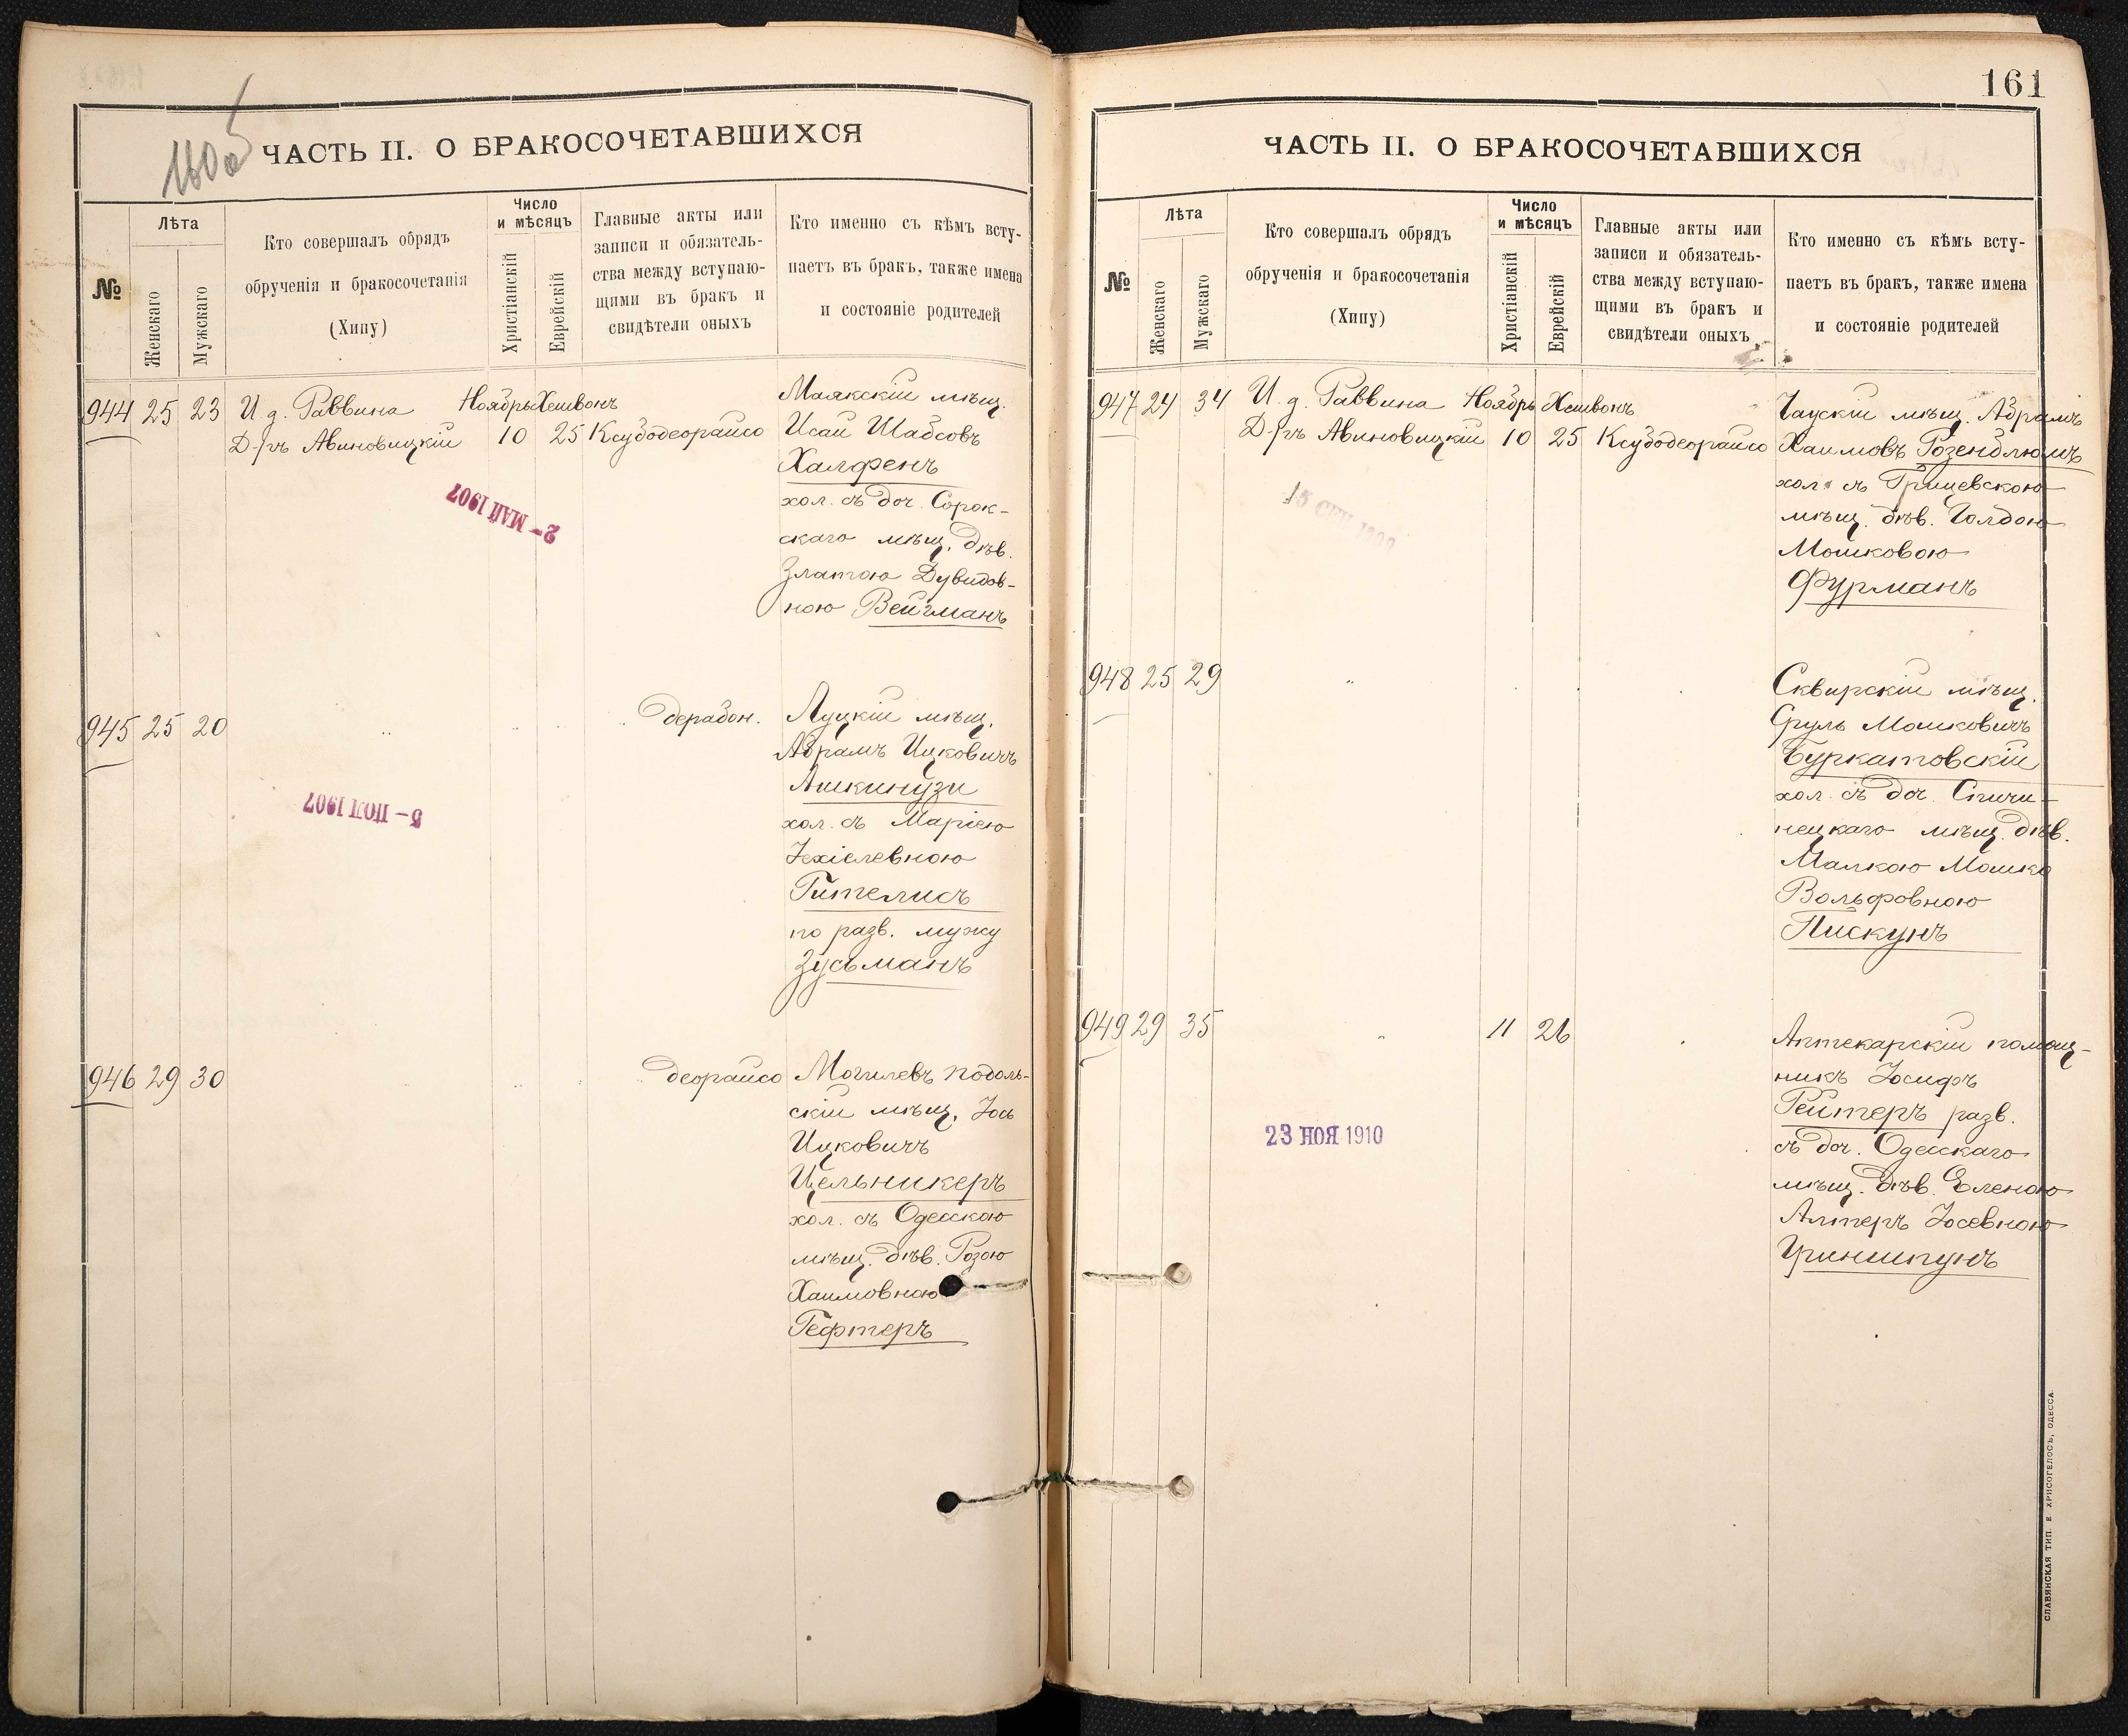 160 об
ЧАСТЬ II. О БРАКОСОЧЕТАВШИХСЯ
№
Лѣта
Женскаго
Мужскаго
Кто совершалъ обрядъ
обрученія и бракосочетанія
(Хипу)
Число
и мѣсяцъ
Христіанскій
Еврейскій
Главные акты или
записи и обязатель-
ства между вступаю-
щими въ бракъ и
свидѣтели оныхъ
Кто именно съ кѣмъ всту-
паетъ въ бракъ, также имена
и состояніе родителей
944 25 23 И. д. Раввина Ноябрь Хешвонъ
Д-ръ Авиновицкій 10 25 Ксубодеорайсо
Маякскій мѣщ.
Исай Шабсовъ
Халфенъ
хол. съ доч. Сорок-
скаго мѣщ. дѣв.
Златою Дувидов-
ною Вейгманъ
2- МАЙ 1907
945 25 20 " " " дерабон.
Луцкій мѣщ.
Абрамъ Ицковичъ
Ашкинузи
хол. съ Маріею
Іехіелевною
Гителисъ
по разв. мужу
Зусьманъ
5- ІЮЛ 1907
946 29 30 " " " деорайсо
Могилевъ Подоль-
скій мѣщ. Іось
Ицковичъ
Цельникеръ
хол. съ Одесскою
мѣщ. дѣв. Розою
Хаимовною
Гефтеръ
161
ЧАСТЬ II. О БРАКОСОЧЕТАВШИХСЯ
№
Лѣта
Женскаго
Мужскаго
Кто совершалъ обрядъ
обрученія и бракосочетанія
(Хипу)
Число
и мѣсяцъ
Христіанскій
Еврейскій
Главные акты или
записи и обязатель-
ства между вступаю-
щими въ бракъ и
свидѣтели оныхъ
Кто именно съ кѣмъ всту-
паетъ въ бракъ, также имена
и состояніе родителей
947 24 34 И. д. Раввина Ноябрь Хешвонъ
Д-ръ Авиновицкій 10 25 Ксубодеорайсо
Чаускій мѣщ. Абрамъ
Хаимовъ Розенблюмъ
хол. съ Грицевскою
мѣщ. дѣв. Голдою
Мошковою
Фурманъ
948 25 29 "
Сквирскій мѣщ.
Сруль Мошковичъ
Буркатовскій
хол. съ доч. Спичи-
нецкаго мѣщ. дѣв.
Малкою Мошко
Вольфовною
Пискунъ
949 29 35 " 11 26
Аптекарскій помощ-
никъ Іосифъ
Рейтеръ разв.
съ доч. Одесскаго
мѣщ. дѣв. Еленою
Алтеръ Іосевною
Гриншпунъ
23 НОЯ 1910
СЛАВЯНСКАЯ ТИП. Е ХРИСОГЕЛОСЪ, ОДЕССА.